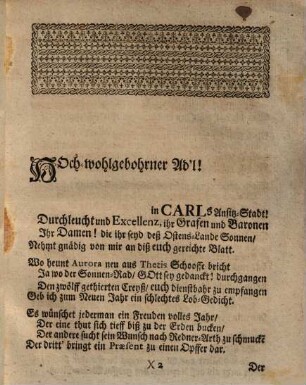 HOch-wohlgebohrner Ad'l!
in CARLs Ansitz-Stadt!
Durchleucht und Excellenz, ihr Grafen und Baronen
Ihr Damen! die ihr seyd deß Ostens-Lande Sonnen/
Nehmt gnädig von mir an diß euch gereichte Blatt.
Wo heunt Aurora neu aus Thetis Schoosse bricht
Ja wo der Sonnen-Rad/ GOtt sey gedanckt! durchgangen
Den zwölff gethierten Creyß/ euch dienstbahr zu empfangen
Geb ich zum Neuen Jahr ein schlechtes Lob-Gedicht.
Es wünschet jederman ein Freuden volles Jahr/
Der eine thut sich tieff biß zu der Erden bucken/
Der andere sucht sein Wunsch nach Redner-Arth zu schmucke
Der dritt' bringt ein Præsent zu einen Opffer dar.
X 2
Der